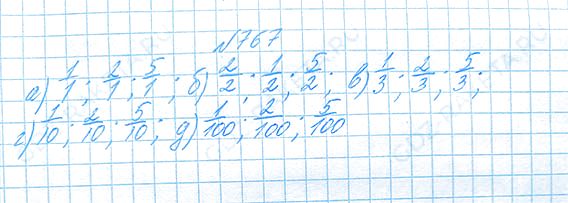 №767
а) 1/1; 2/1; 5/1; б) 2/2; 1/2; 5/2; в) 1/3; 2/3; 5/3;
г) 1/10; 2/10; 5/10; д) 1/100; 2/100; 5/100